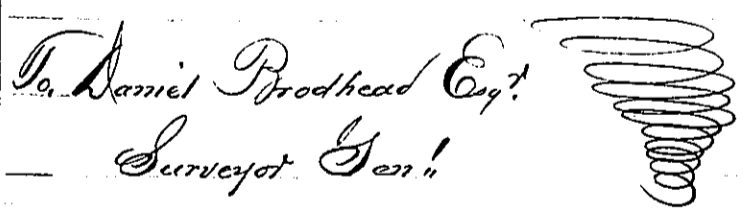 To, Daniel Brodhead Esqr.
— Surveyor Genll